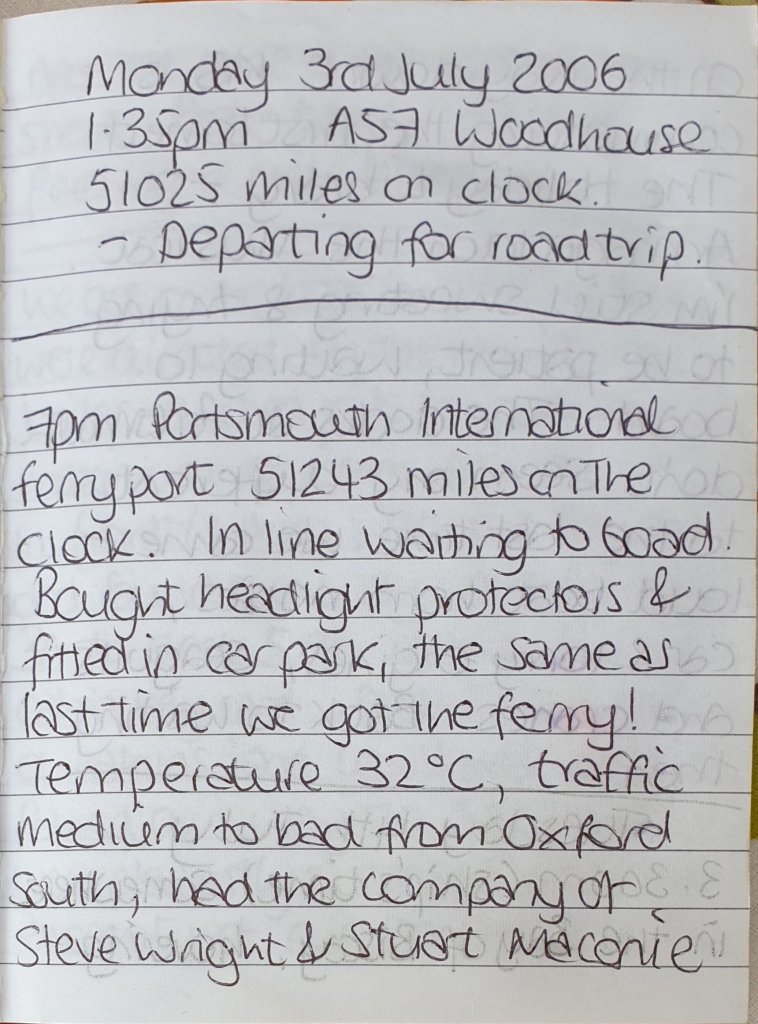 Monday 3rd July 2006
1.35pm A57 Woodhouse
51025 miles on clock.
- Departing for roadtrip.
7pm Portsmouth International
ferry port 51243 miles on The
clock. In line waiting to board.
Bought headlight protectors &
fitted in car park, the same as
last time we got the ferry!
Temperature 32°C, traffic
medium to bad from Oxford
South, had the company of
Steve Wright & Stuart Maconie